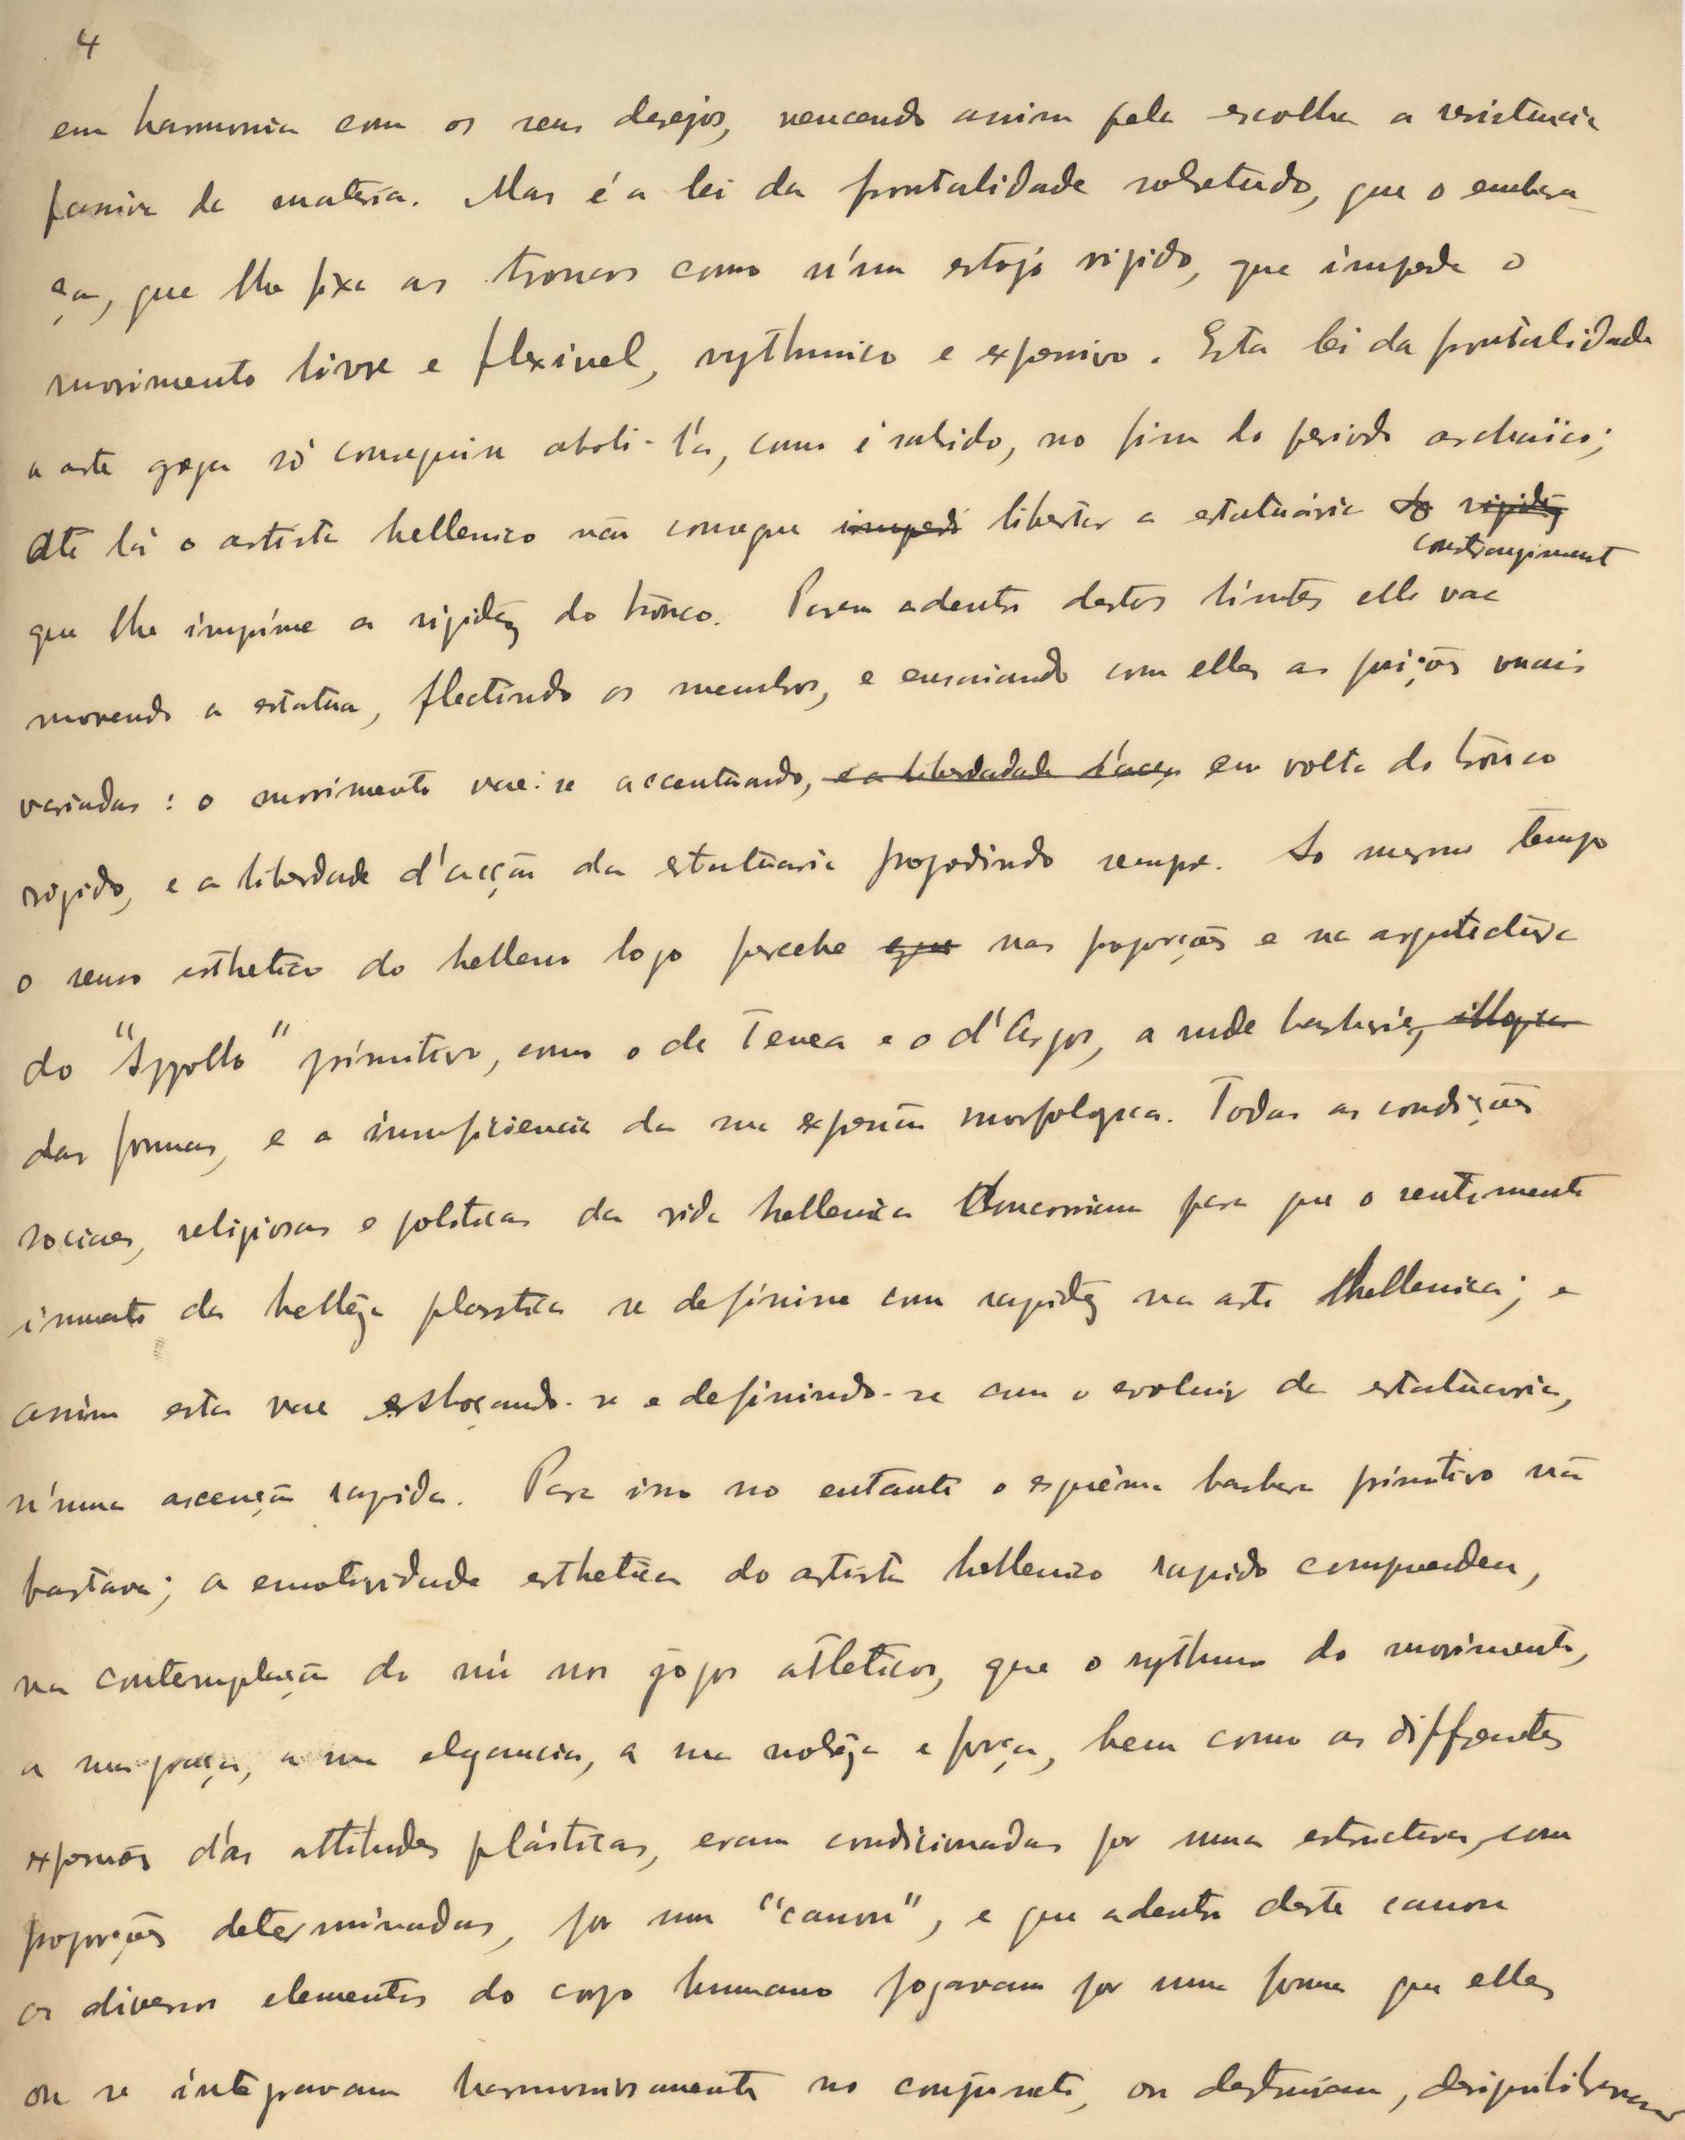 4
em harmonia com os seus desejos, vencendo assim pela escolha a resistencia
passiva da materia. Mas é a lei da frontalidade sobretudo, que o embara-
ça, que lhe fixa os troncos como n'um estojo rigido, que impede o
movimento livre e flexivel, rythmico e expressivo. Esta lei da frontalidade
a arte grega só conseguiu aboli-l'a, como é sabido, no fim do periodo archaïco;
até lá o artista hellenico não consegue impedi libertar a estatuária do rigidêz
constrangiment
que lhe imprime a rigidêz do trônco. Porem adentro destes limites elle vae
movendo a estatua, flectindo os membros, e ensaiando com elles as posições mais
variadas: o movimento vae-se accentuando, e a liberdadade d'acção em volta do trônco
rigido, e a liberdade d'acção da estatuaria progredindo sempre. Ao mesmo tempo
o senso esthetico do helleno logo percebe que nas proporções e na arquitectura
do "Appollo" primitivo, como o de Tenea e o d'Argos, a rude barbarie, illogica
das formas, e a insuficiencia da sua expressão morfologica. Todas as condições
sociaes, religiosas e politicas da vida hellenica concorriam para que o sentimento
innato da bellêza plastica se definisse com rapidêz na arte hellenica; e
assim esta vae esboçando-se e definindo-se com o evoluir da estatuaria,
n'uma ascenção rapida. Para isso no entanto o esquêma barbaro primitivo não
bastava; a emotividade esthetica do artista hellenico rapido comprendeu,
na contemplação do nú nos jogos atleticos, que o rythmo do movimento,
a sua graça, a sua elegancia, a sua nobrêza e força, bem como as differentes
expressões d'as attitudes plásticas, eram condicionadas por uma estructura, com
proporções determinadas, por um "canon", e que adentro deste canon
os diversos elementos do corpo humano jogavam por uma forma que elles
ou se integravam harmoniosamente no conjuncto, ou destruiam, desiquilibravam